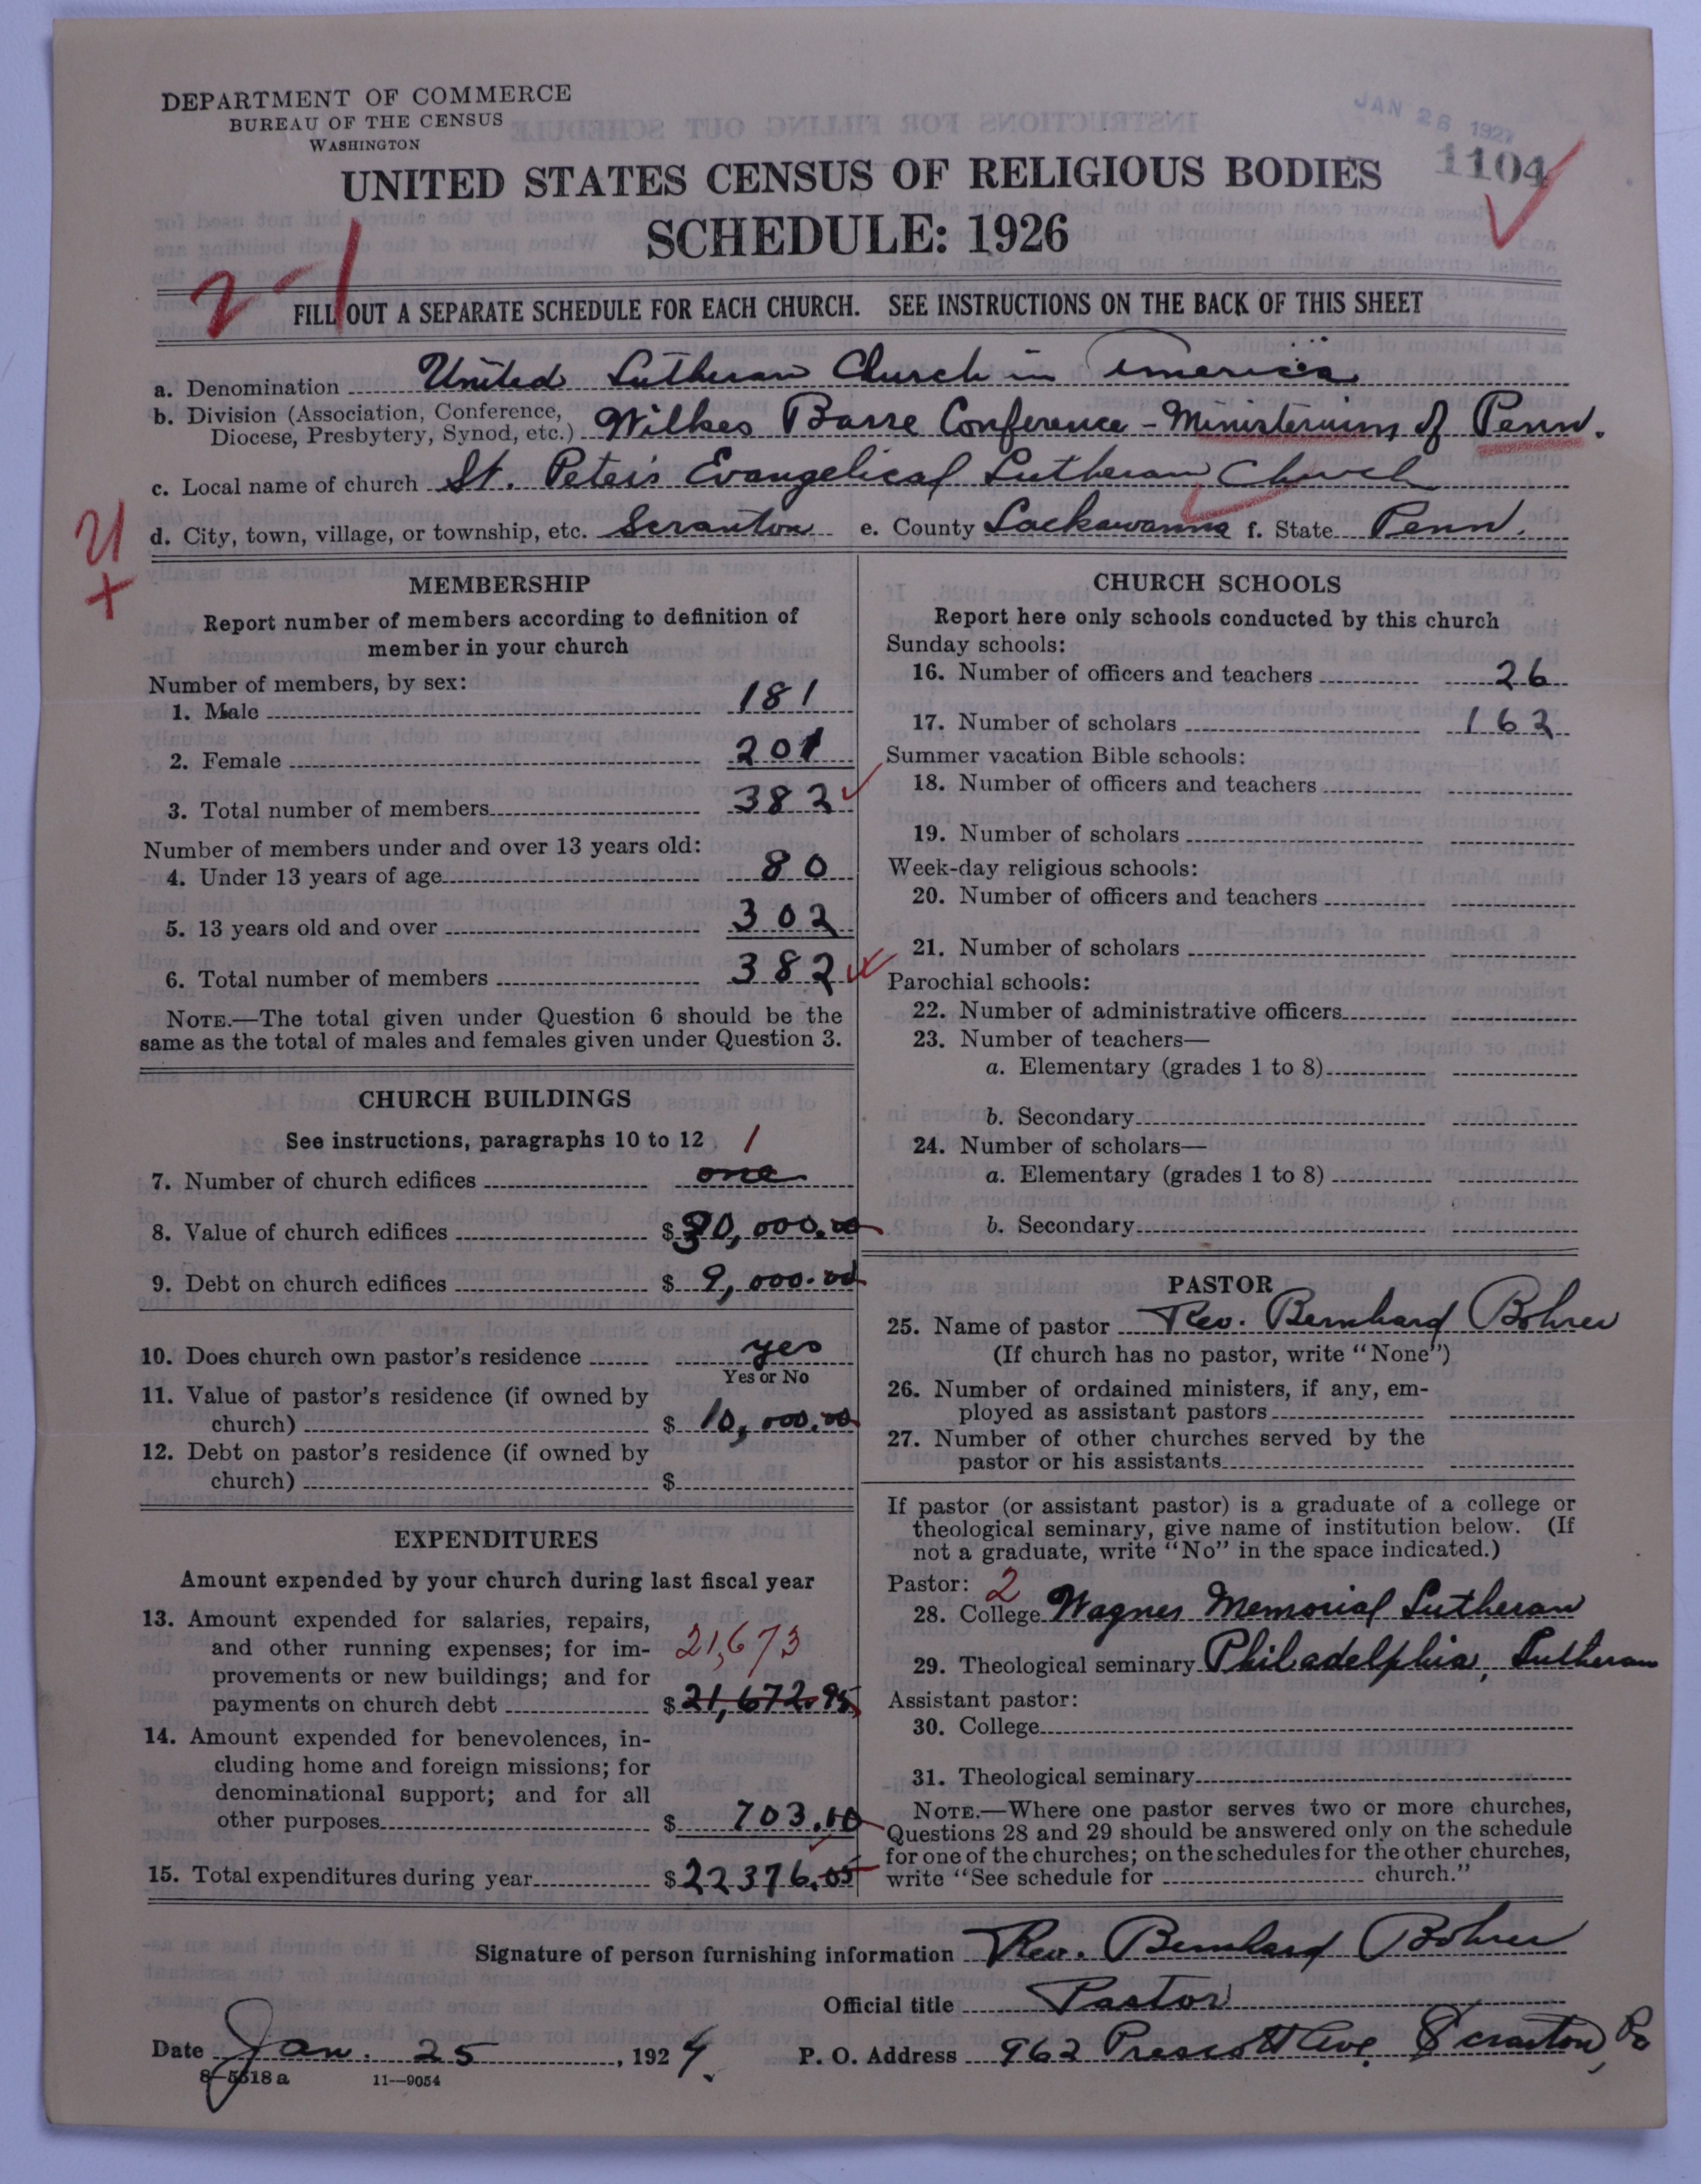 DEPARTMENT OF COMMERCE
BUREAU OF THE CENSUS
WASHINGTON
JAN 26 1927
1104
UNITED STATES CENSUS OF RELIGIOUS BODIES
SCHEDULE: 1926
2-1
FILL OUT A SEPARATE SCHEDULE FOR EACH CHURCH. SEE INSTRUCTIONS ON THE BACK OF THIS SHEET
a. Denomination United Lutheran Church in America
b. Division (Association, Conference, Diocese, Presbytery, Synod, etc.) Wilkes Barre Conference - Ministerium of Penn.
c. Local name of church St. Peter's Evangelical Lutheran Church
d. City, town, village, or township, etc. Scranton e. County Lackawanna f. State Penn.
MEMBERSHIP
Report number of members according to definition of
member in your church
Number of members, by sex:
1. Male 181
2. Female 201
3. Total number of members 382
Number of members under and over 13 years old:
4. Under 13 years of age 80
5. 13 years old and over 302
6. Total number of members 382
NOTE.—The total given under Question 6 should be the
same as the total of males and females given under Question 3.
CHURCH BUILDINGS
See instructions, paragraphs 10 to 12
1
7. Number of church edifices one
8. Value of church edifices $ 0,000.00
9. Debt on church edifices $ 9,000.00
10. Does church own pastor's residence yes
Yes or No
11. Value of pastor's residence (if owned by
church) $ 10,000.00
12. Debt on pastor's residence (if owned by
church) $
EXPENDITURES
Amount expended by your church during last fiscal year
13. Amount expended for salaries, repairs,
and other running expenses; for im-
provements or new buildings; and for
21,673
payments on church debt $ 21,672.95
14. Amount expended for benevolences, in-
cluding home and foreign missions; for
denominational support; and for all
other purposes $ 703.10
15. Total expenditures during year $ 22376.05
CHURCH SCHOOLS
Report here only schools conducted by this church
Sunday schools:
16. Number of officers and teachers 26
17. Number of scholars 162
Summer vacation Bible schools:
18. Number of officers and teachers
19. Number of scholars
Week-day religious schools:
20. Number of officers and teachers
21. Number of scholars
Parochial schools:
22. Number of administrative officers
23. Number of teachers—
a. Elementary (grades 1 to 8)
b. Secondary
24. Number of scholars—
a. Elementary (grades 1 to 8)
b. Secondary
PASTOR
25. Name of pastor Rev. Bernhard Bohrer
(If church has no pastor, write "None")
26. Number of ordained ministers, if any, em-
ployed as assistant pastors
27. Number of other churches served by the
pastor or his assistants
If pastor (or assistant pastor) is a graduate of a college or
theological seminary, give name of institution below. (If
not a graduate, write "No" in the space indicated.)
Pastor: 2
28. College Wagner Memorial Lutheran
29. Theological seminary Philadelphia, Lutheran
Assistant pastor:
30. College
31. Theological seminary
NOTE.—Where one pastor serves two or more churches,
Questions 28 and 29 should be answered only on the schedule
for one of the churches; on the schedules for the other churches,
write "See schedule for church."
Signature of person furnishing information Rev. Bernhard Bohrer
Official title Pastor
Date Jan. 25, 192
P. O. Address 962 Prescott Ave. Scranton, Pa
8-5518a 11-9054